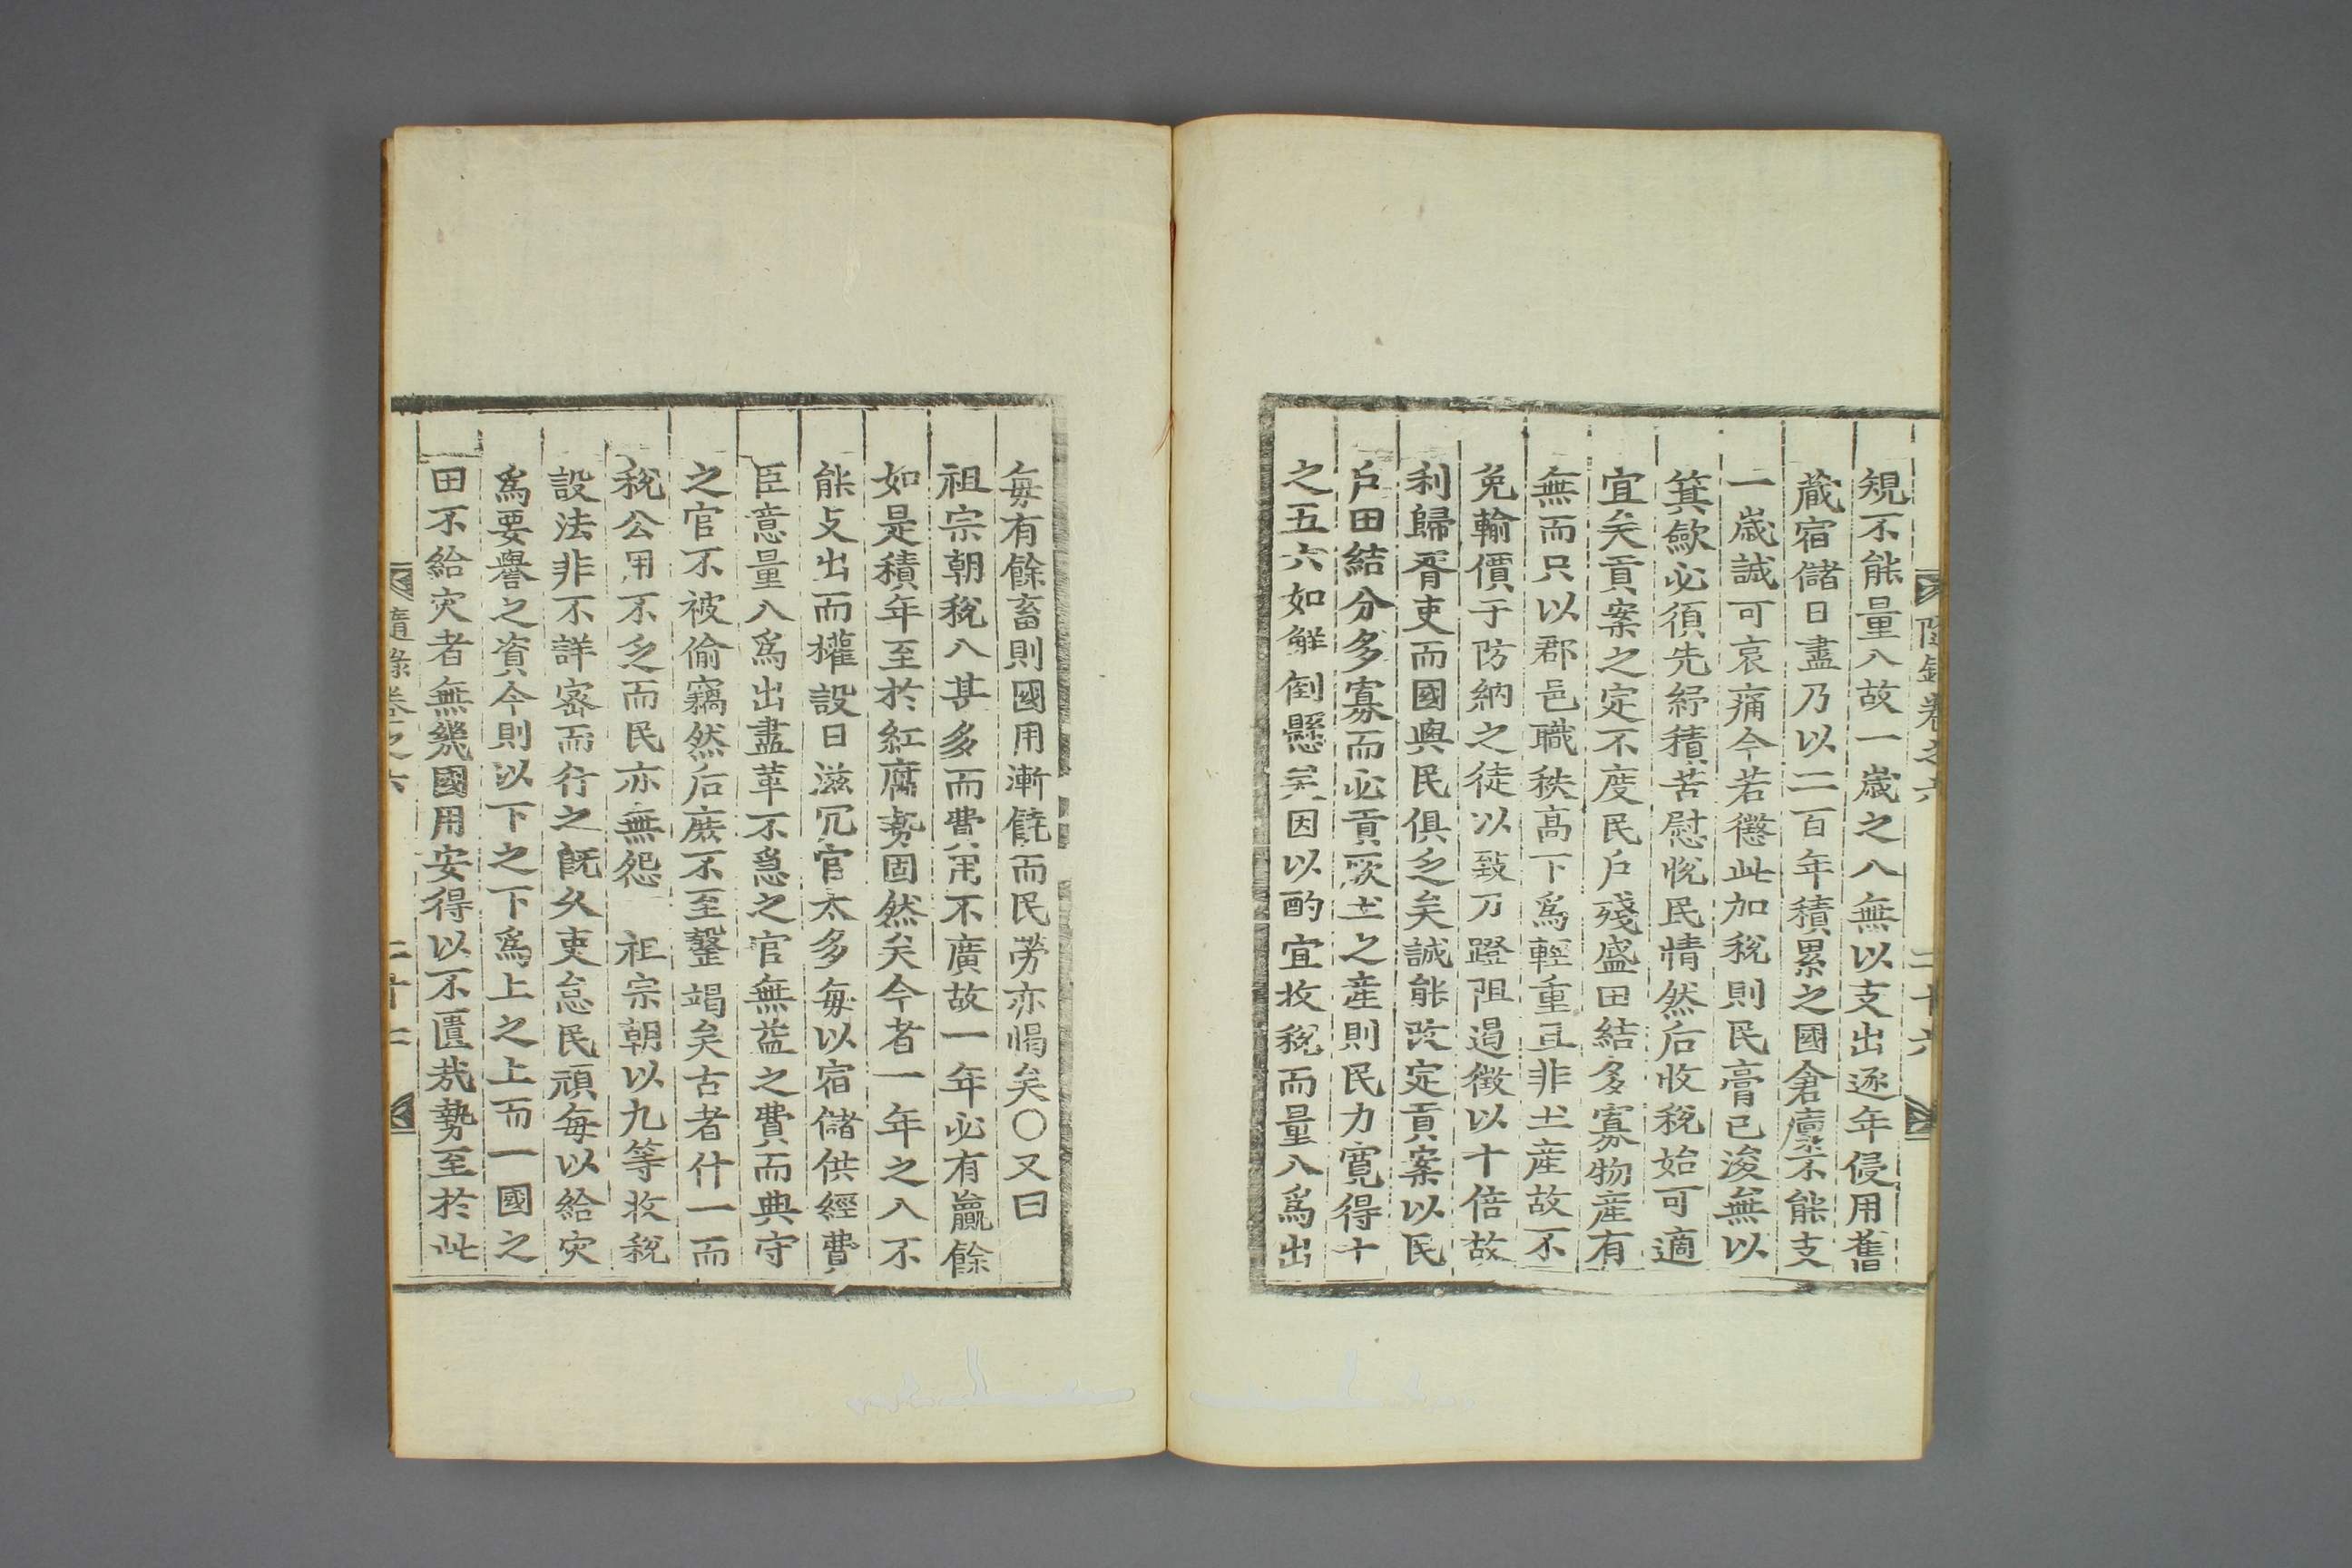 規不能量入故一歲之入無以支出逐年侵用舊
蔵宿儲日盡乃以二百年積累之國倉廩不能支
一歲誠可哀痛今若懲此加稅則民膏已浚無以
箕歛必須先紓積苦慰恱民情然后收稅始可適
宜矣貢案之定不度民戶殘盛田結多寡物産有
無而只以郡邑職秩高下爲輕重且非土産故不
免輸價于防納之徒以致刀蹬阻遏徵以十倍故
利歸胥吏而國與民俱乏矣誠能改定貢案以民
戶田結分多寡而必貢厥土之産則民力寛得十
之五六如觧倒懸矣因以酌宜收稅而量入爲出
隨錄卷之六
二十六
每有餘畜則國用漸饒而民勞亦愒矣○又曰
祖宗朝稅入甚多而費用不廣故一年必有贏餘
如是積年至於紅腐勢固然矣今者一年之入不
能支出而權設日滋冗官太多每以宿儲供經費
臣意量入爲出盡革不急之官無益之費而典守
之官不被偷竊然后庶不至罄竭矣古者什一而
稅公用不乏而民亦無怨 祖宗朝以九等收稅
設法非不詳密而行之旣久吏怠民頑每以給灾
爲要譽之資今則以下之下爲上之上而一國之
田不給灾者無幾國用安得以不匱㢤勢至於此
隨錄卷之六